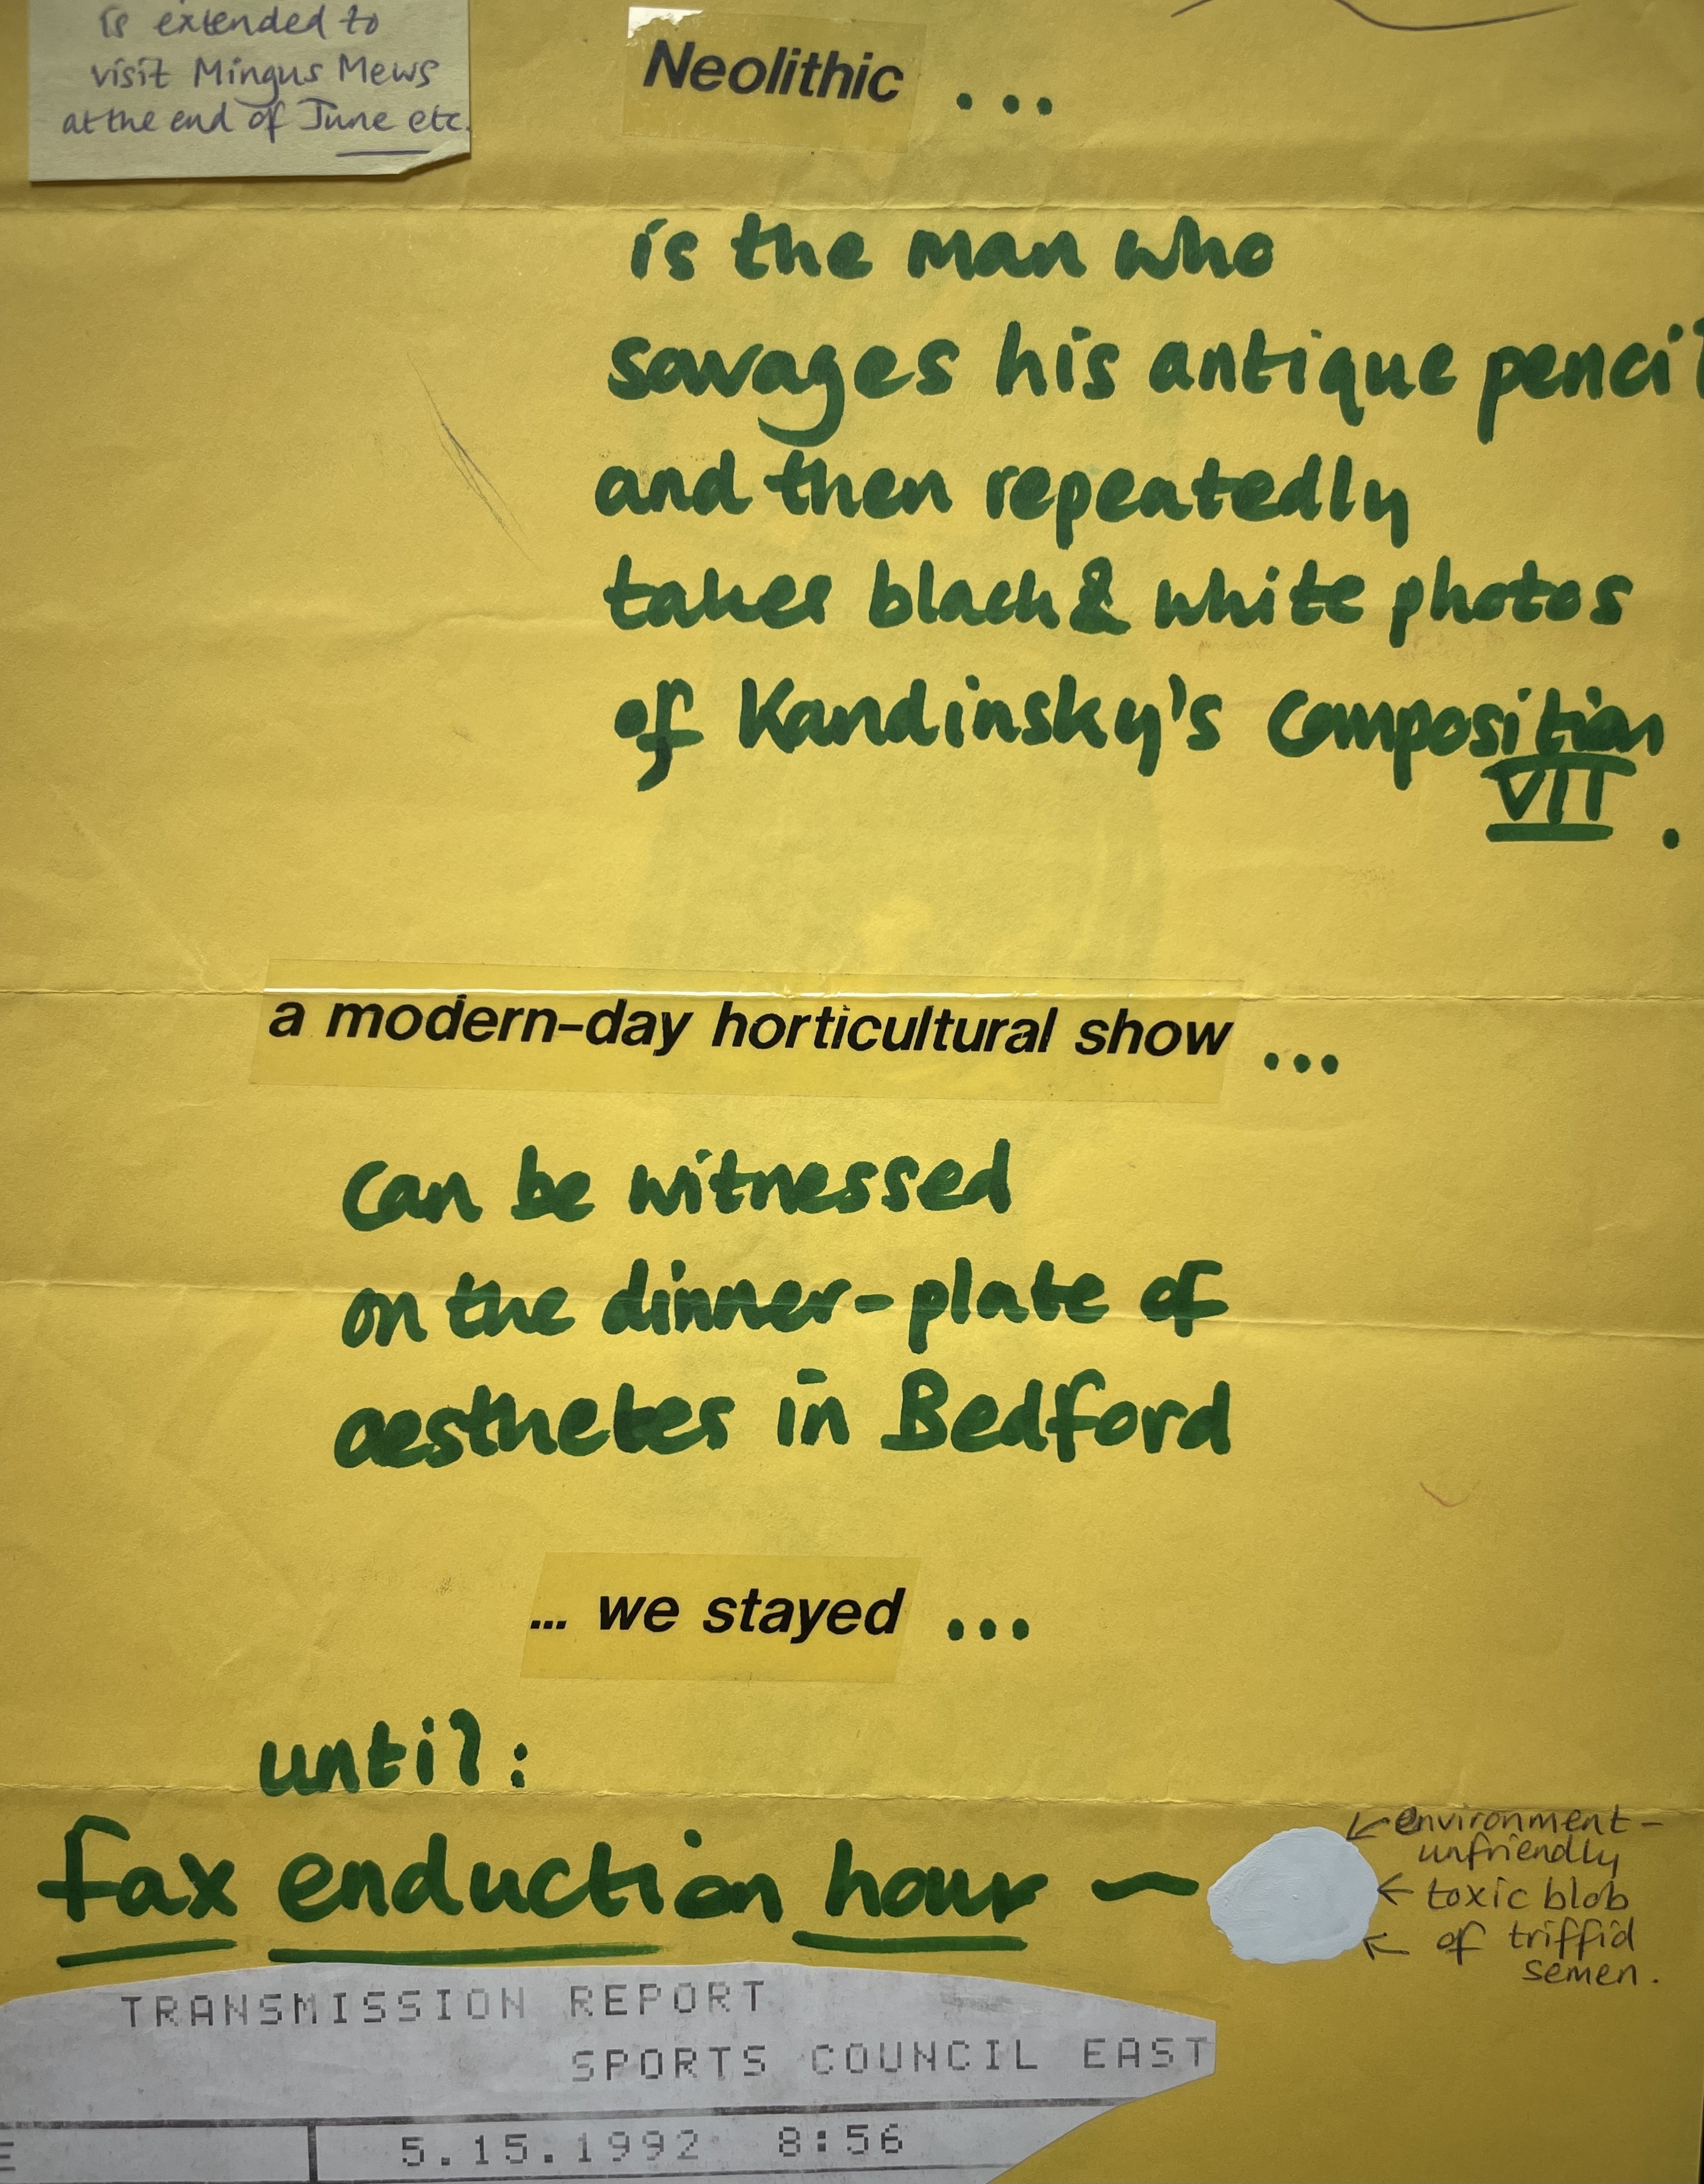 is extended to
visit Mingus Mews
at the end of June etc.
Neolithic ...
is the man who
savages his antique pencil
and then repeatedly
takes black & white photos
of Kandinsky's Composition
VII.
a modern-day horticultural show ...
can be witnessed
on the dinner-plate of
aesthetes in Bedford
... we stayed ...
until:
fax enduction hour —
environment-
unfriendly
toxic blob
of triffid
semen.
TRANSMISSION REPORT
SPORTS COUNCIL EAST
E
5.15.1992 8:56